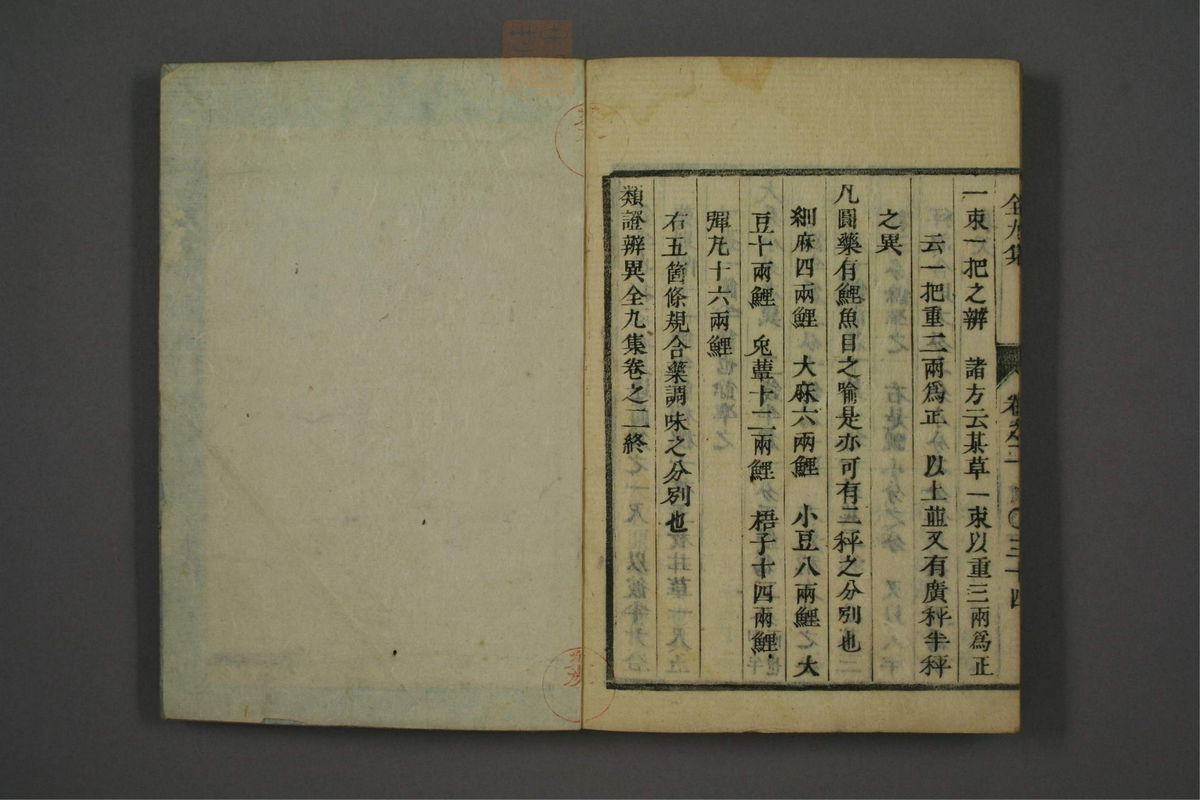 全九集 卷之二 〇三十四
一束一把之辨 諸方云某草一束以重三兩爲正
云一把重二兩爲正 以上並又有廣秤半秤
之異
凡圓藥有鯉魚目之喻是亦可有二秤之分別也
細麻四兩鯉 大麻六兩鯉 小豆八兩鯉 大
豆十兩鯉 兎藚十二兩鯉 梧子十四兩鯉
彈丸十六兩鯉
右五箇條規合藥調味之分別也
類證辨異全九集卷之二終